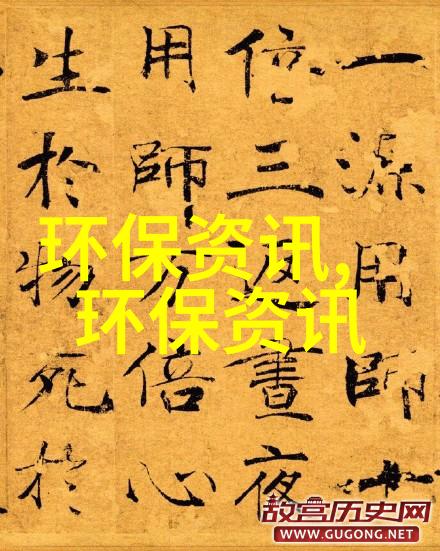 一源用師十
倍三反晝夜
用師万倍心
生於物死於
环保资讯,
环保资讯
故宫历史网
WWW.GUGONG.NET